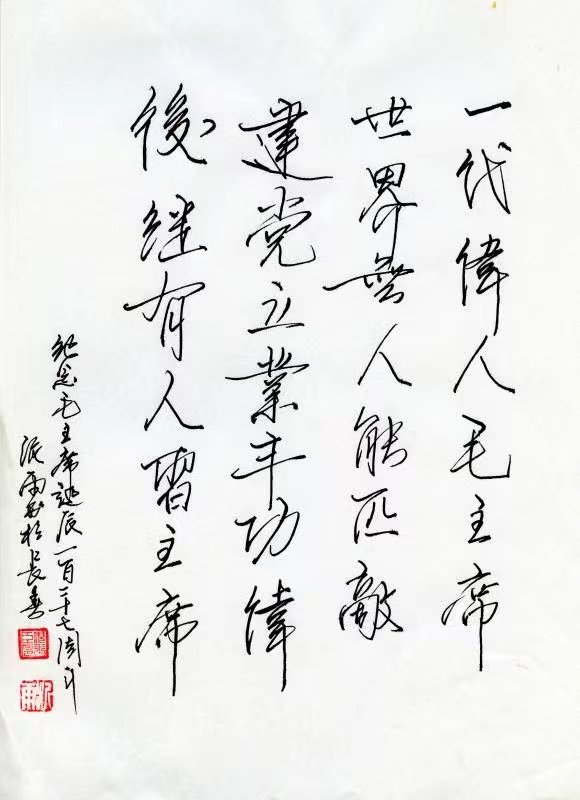 一代偉人毛主席
世界無人能匹敵
建党立業丰功偉
後继有人習主席
纪念毛主席诞辰一百二十七周年
于長春